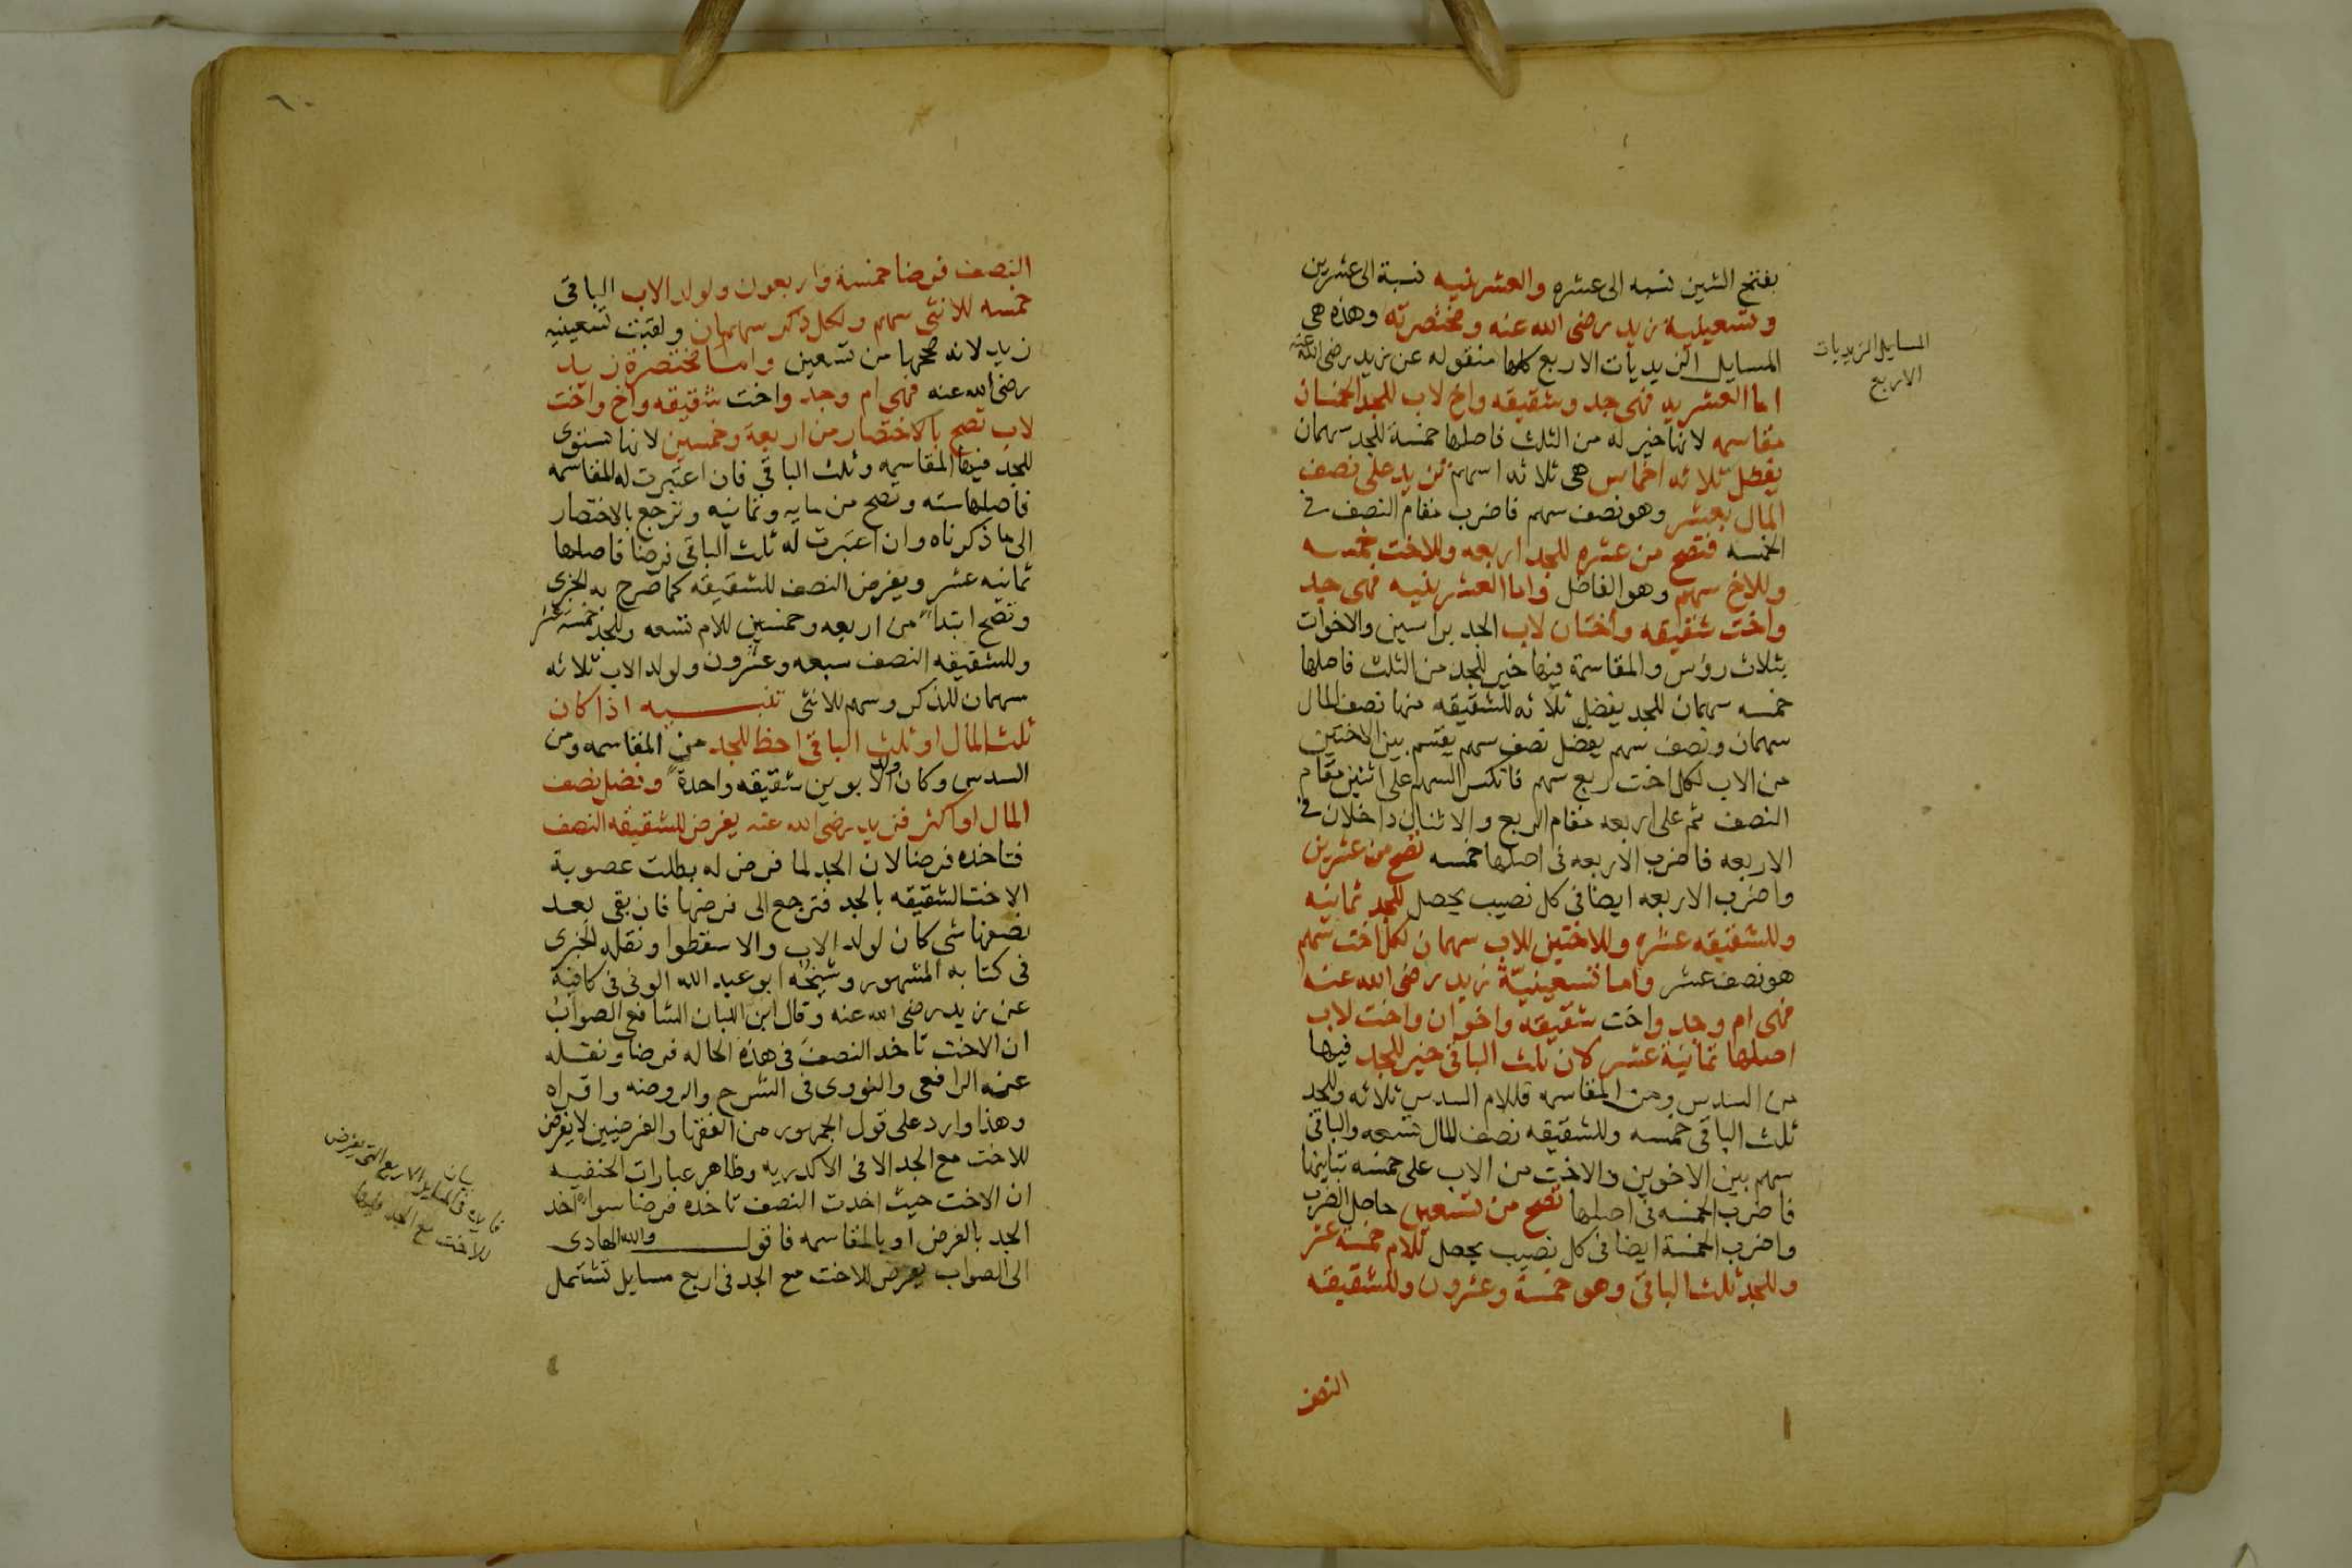 بفتح الشين نسبه الى عشره والعشرنيه نسبة الى عشرين
وتسعينية زيد رضى الله عنه ومختصرته وهذه هى
المسايل الزيديات الاربع كلها منقوله عن زيد رضى الله عنه
المسايل الزيديات
الاربع
اما العشريه فهى جد وشقيقه واخ لاب للجد الخمسان
مقاسمه لانها خير له من الثلث فاصلها خمسة للجد سهمان
يفضل ثلاثه اخماس هى ثلاثه اسهم تزيد على نصف
المال بعشر وهو نصف سهم فاضرب مقام النصف فى
الخمسه فتصح من عشره للجد اربعه وللاخت خمسه
وللاخ سهم وهو الفاضل واما العشرينيه فهى جد
واخت شقيقه واختان لاب الجد براسين والاخوات
بثلاث روس والمقاسمة فيها خير للجد من الثلث فاصلها
خمسه سهمان للجد يفضل ثلاثه للشقيقه منها نصف المال
سهمان ونصف سهم يفضل نصف سهم يقسم بين الاختين
من الاب لكل اخت ربع سهم فانكسر السهم على اثنين مقام
النصف ثم على اربعه مقام الربع والاثنان داخلان فى
الاربعه فاضرب الاربعه فى اصلها خمسه تصح من عشرين
واضرب الاربعه ايضا فى كل نصيب يحصل للجد ثمانيه
وللشقيقه عشره وللاختين للاب سهمان لكل اخت سهم
هو نصف عشر واما تسعينيّة زيد رضى الله عنه
فهى ام وجد واخت شقيقه واخوان واخت لاب
اصلها ثمانية عشر لان ثلث الباقى خير للجد فيها
من السدس ومن المقاسمه فللام السدس ثلاثه وللجد
ثلث الباقى خمسه وللشقيقه نصف المال تسعه والباقى
سهم بين الاخوين والاخت من الاب على خمسه تباينها
فاضرب الخمسه فى اصلها تصح من تسعين حاصل الضرب
واضرب الخمسة ايضا فى كل نصيب يحصل للام خمسة عشر
وللجد ثلث الباقى وهو خمسة وعشرون وللشقيقه
النصف
٦٠
النصف فرضا خمسة واربعون ولولد الاب الباقى
خمسه للانثى سهم ولكل ذكر سهمان ولقبت تسعينيه
زيد لانه صححها من تسعين واما مختصرة زيد
رضى الله عنه فهى ام وجد واخت شقيقه واخ واخت
لاب تصح بالاختصار من اربعة وخمسين لانها تستوى
للجد فيها المقاسمه وثلث الباقى فان اعتبرت له المقاسمه
فاصلها سته وتصح من مايه وثمانيه وترجع بالاختصار
الى ما ذكرناه وان اعتبرت له ثلث الباقى فرضا فاصلها
ثمانيه عشر ويفرض النصف للشقيقه كما صرح به الخبرى
وتصح ابتدا من اربعه وخمسين للام تسعه وللجد خمسة عشر
وللشقيقه النصف سبعه وعشرون ولولد الاب ثلاثه
سهمان للذكر وسهم للانثى تنبيه اذا كان
ثلث المال او ثلث الباقى احظ للجد من المقاسمه ومن
السدس وكان ولد الابوين شقيقه واحدة وفضل نصف
المال او اكثر فزيد رضى الله عنه يفرض للشقيقه النصف
فتاخذه فرضا لان الجد لما فرض له بطلت عصوبة
الاخت الشقيقه بالجد فترجع الى فرضها فان بقى بعد
نصفها شى كان لولد الاب والا سقطوا ونقله الخبرى
فى كتابه المشهور وشيخه ابو عبد الله الونى فى كافية
عن زيد رضى الله عنه وقال ابن اللبان الشافعى الصواب
ان الاخت تاخد النصف فى هذه الحاله فرضا ونقله
عنه الرافعى والنووى فى الشرح والروضه واقراه
وهذا وارد على قول الجمهور من الفقها والفرضيين لا يفرض
للاخت مع الجد الا فى الاكدريه وظاهر عبارات الحنفيه
ان الاخت حيث اخدت النصف تاخده فرضا سواء اخد
الجد بالفرض او بالمقاسمه فاقول والله الهادى
الى الصواب يفرض للاخت مع الجد فى اربع مسايل تشتمل
بيان
فايده فى المسايل الاربع التى يفرض
للاخت مع الجد فيها